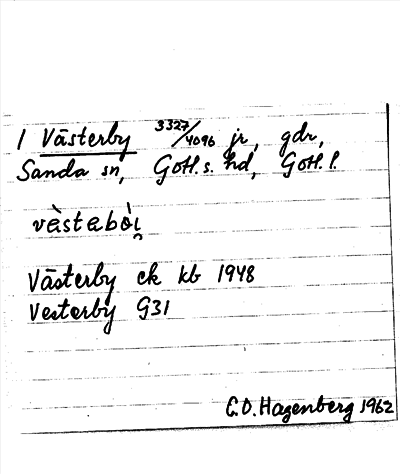 1 Västerby 3327/4096 jr, gdr,
Sanda sn, Gotl. s. hd, Gotl. l.
vàstabòi̯
Västerby ek kb 1948
Vesterby G31
C.O. Hagenberg 1962